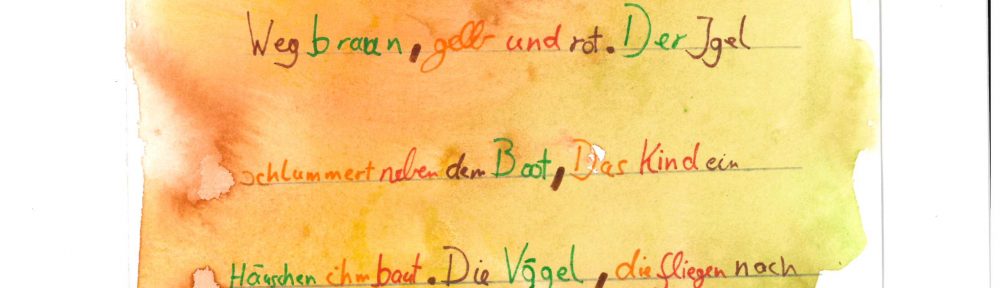 Weg braun, gelb und rot. Der Igel
schlummert neben dem Boot, Das Kind ein
Häuschen ihm baut. Die Vögel, die fliegen nach